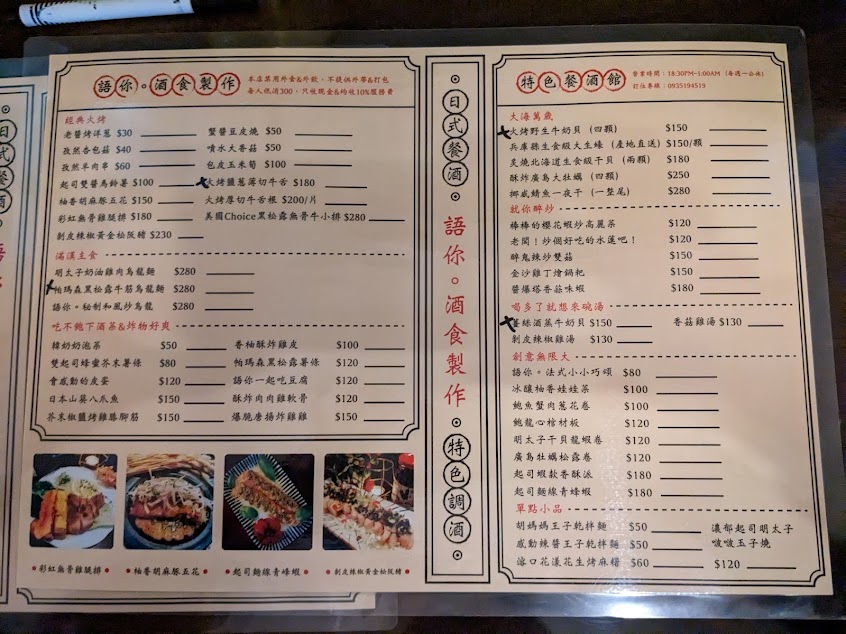 語你。酒食製作
本店禁用外食&外飲、不提供外帶&打包
每人低消300、只收現金&均收10%服務費
經典火烤
老醬烤洋蔥 $30
蟹醬豆皮燒 $50
孜然杏包菇 $40
噴水大香菇 $50
孜然羊肉串 $60
包皮玉米筍 $100
起司雙醬馬鈴薯 $100
火烤鹽蔥薄切牛舌 $180
柚香胡麻豚五花 $150
火烤厚切牛舌根 $200/片
彩虹無骨雞腿排 $180
美國Choice黑松露無骨牛小排 $280
剝皮辣椒黃金松阪豬 $230
滿漢主食
明太子奶油雞肉烏龍麵 $280
帕瑪森黑松露牛筋烏龍麵 $280
語你。秘制和風炒烏龍 $280
吃不飽下酒菜&炸物好爽
韓奶奶泡菜 $50
香柚酥炸雞皮 $100
雙起司蜂蜜芥末薯條 $80
帕瑪森黑松露薯條 $120
會感動的皮蛋 $120
語你一起吃豆腐 $120
日本山葵八爪魚 $150
酥炸肉肉雞軟骨 $120
芥末椒鹽烤雞膝腳筋 $150
爆脆唐揚炸雞雞 $150
彩虹無骨雞腿排
柚香胡麻豚五花
起司麵線青蜂蝦
剝皮辣椒黃金松阪豬
日式餐酒
語你。酒食製作
特色調酒
特色餐酒館
營業時間：18:30PM-1:00AM（每週一公休）
訂位專線：0935194519
大海萬歲
火烤野生牛奶貝（四顆） $150
兵庫縣生食級大生蠔（產地直送） $150/顆
炙燒北海道生食級干貝（兩顆） $180
酥炸廣島大牡蠣（四顆） $250
挪威鯖魚一夜干（一整尾） $280
就你醉炒
棒棒的櫻花蝦炒高麗菜 $120
老闆！炒個好吃的水蓮吧！ $120
醉鬼辣炒雙菇 $150
金沙雞丁燴鍋粑 $150
醬爆塔香菇味蝦 $180
喝多了就想來碗湯
薑絲酒蒸牛奶貝 $150
香菇雞湯 $130
剝皮辣椒雞湯 $130
創意無限大
語你。法式小小巧頌 $80
冰釀柚香娃娃菜 $100
鮑魚蟹肉蔥花卷 $100
鮑龍心棺材板 $120
明太子干貝龍蝦卷 $120
廣島牡蠣松露卷 $120
起司蝦款香酥派 $180
起司麵線青蜂蝦 $180
單點小品
胡媽媽王子乾拌麵 $50
濃郁起司明太子
感動辣醬王子乾拌麵 $50
啵啵玉子燒
溶口花漾花生烤麻糬 $60
$120
日
式
餐
酒
語